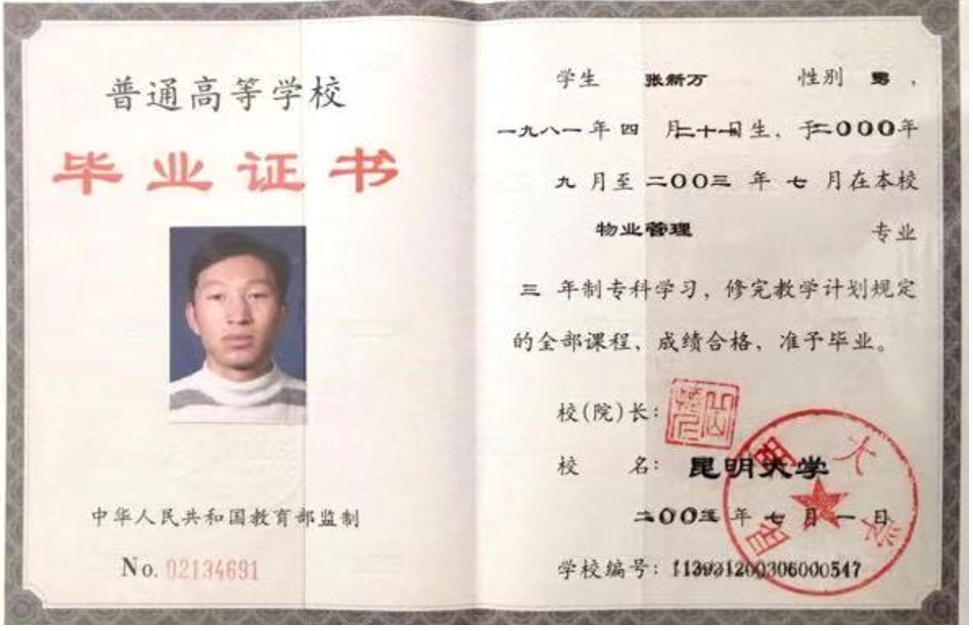 普通高等学校
毕业证书
中华人民共和国教育部监制
No. 02134691
学生 张新万 性别 男，
一九八一年四 月二十一日生，于二000年
九 月至 二00三 年 七 月在本校
物业管理 专业
三 年制专科学习，修完教学计划规定
的全部课程，成绩合格，准予毕业。
校(院)长：
校 名：昆明大学
二00三 年 七 月 一 日
学校编号：113931200306000547
昆明大学